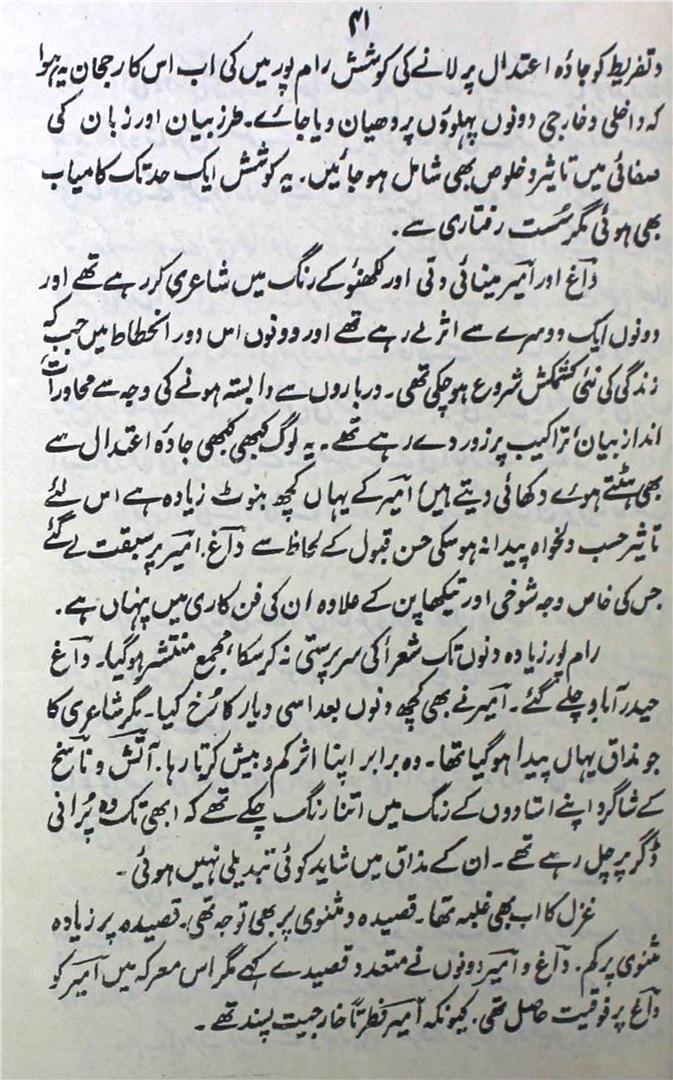 ۴۱
وتفریط کو جادۂ اعتدال پر لانے کی کوشش رام پور میں کی اب اس کا رجحان یہ ہوا
کہ داخلی و خارجی دونوں پہلوؤں پر دھیان دیا جائے۔ طرز بیان اور زبان کی
صفائی میں تاثیر و خلوص بھی شامل ہو جائیں۔ یہ کوشش ایک حد تک کامیاب
بھی ہوئی مگر سُست رفتاری سے۔
داغ اور امیر مینائی دلی اور لکھنؤ کے رنگ میں شاعری کر رہے تھے اور
دونوں ایک دوسرے سے اثر لے رہے تھے اور دونوں اس دور انحطاط میں جب کہ
زندگی کی نئی کشمکش شروع ہو چکی تھی۔ درباروں سے وابستہ ہونے کی وجہ سے محاورات،
انداز بیان، تراکیب پر زور دے رہے تھے۔ یہ لوگ کبھی کبھی جادۂ اعتدال سے
بھی ہٹتے ہوئے دکھائی دیتے ہیں، امیر کے یہاں کچھ بنوٹ زیادہ ہے اس لئے
تاثیر حسب دلخواہ پیدا نہ ہو سکی حسن قبول کے لحاظ سے داغ، امیر پر سبقت لے گئے
جس کی خاص وجہ شوخی اور تیکھا پن کے علاوہ ان کی فن کاری میں پنہاں ہے۔
رام پور زیادہ دنوں تک شعرأ کی سرپرستی نہ کر سکا، مجمع منتشر ہو گیا۔ داغ
حیدرآباد چلے گئے۔ امیر نے بھی کچھ دنوں بعد اسی دیار کا رُخ کیا۔ مگر شاعری کا
جو مذاق یہاں پیدا ہو گیا تھا۔ وہ برابر اپنا اثر کم و بیش کرتا رہا۔ آتش و ناسخ
کے شاگرد اپنے استادوں کے رنگ میں اتنا رنگ چکے تھے کہ ابھی تک وہ پُرانی
ڈگر پر چل رہے تھے۔ ان کے مذاق میں شاید کوئی تبدیلی نہیں ہوئی۔
غزل کا اب بھی غلبہ تھا۔ قصیدہ و مثنوی پر بھی توجہ تھی۔ قصیدہ پر زیادہ
مثنوی پر کم۔ داغ و امیر دونوں نے متعدد قصیدے کہے مگر اس معرکہ میں امیر کو
داغ پر فوقیت حاصل تھی۔ کیونکہ امیر فطرتاً خارجیت پسند تھے۔